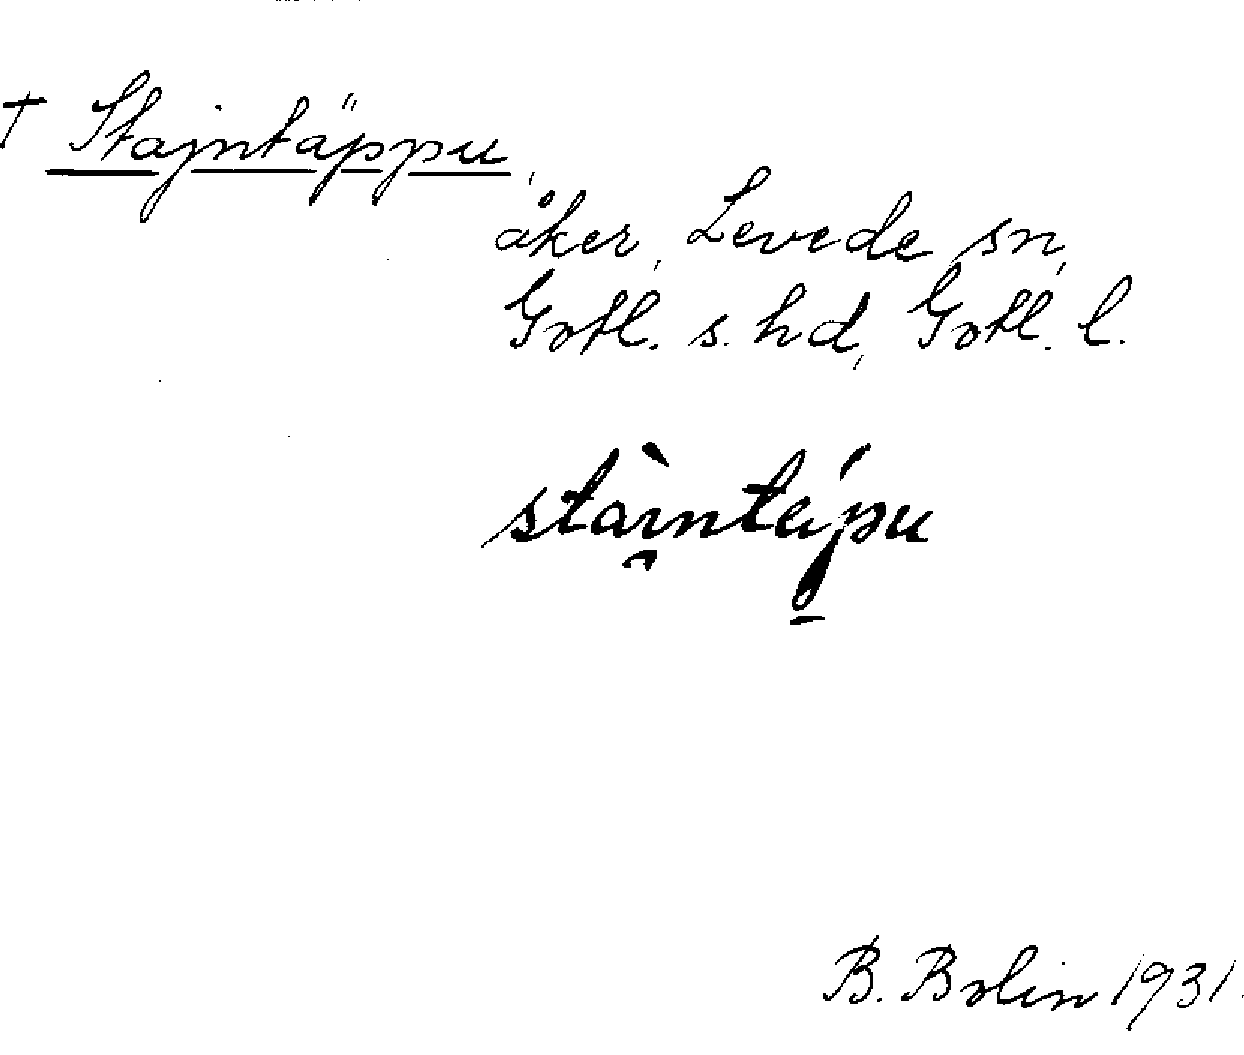 † Stajntäppu,
åker, Levede sn,
Gotl. s. hd, Gotl. l.
B. Bolin 1931.